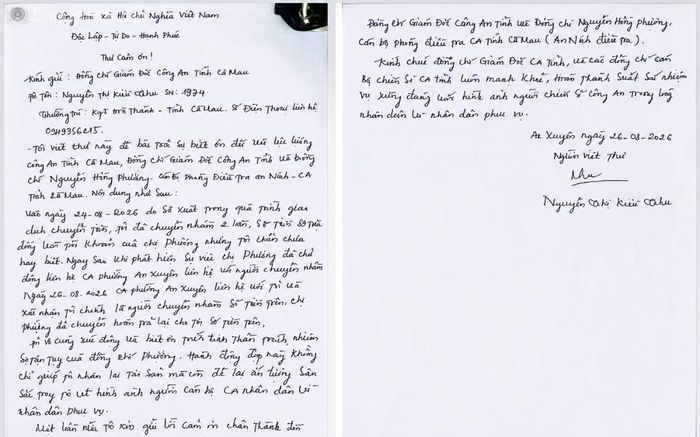 Cộng Hoà Xã Hội Chủ Nghĩa Việt Nam
Độc Lập - Tự Do - Hạnh Phúc
Thư Cảm ơn!
Kính gửi: Đồng Chí Giám Đốc Công An Tỉnh Cà Mau
Họ Tên: Nguyễn Thị Kiều Thu SN: 1974
Thường trú: Thành - Tỉnh Cà Mau. Số Điện Thoại liên hệ
- Tôi viết thư này để bày tỏ sự biết ơn đối với lực lượng
Công An Tỉnh Cà Mau, Đồng Chí Giám Đốc Công An Tỉnh và Đồng
Chí Nguyễn Hồng Phường. Cán Bộ Phòng Điều Tra an Ninh - CA
Tỉnh Cà Mau. Nội dung như Sau:
Vào ngày 24-08-2026 do Sơ xuất trong quá trình giao
dịch chuyển tiền, tôi đã chuyển nhầm 2 lần, số tiền
đồng vào tài khoản của chị Phường nhưng tôi chưa
hay biết. Ngay sau khi phát hiện sự việc chị Phường đã chủ
động liên hệ CA phường An Xuyên liên hệ với người chuyển nhầm
Ngày 26-08-2026 CA phường An Xuyên liên hệ với tôi và
xác nhận tôi chính là người chuyển nhầm số tiền trên. Chị
Phường đã chuyển hoàn trả lại cho tôi số tiền trên,
tôi vô cùng xúc động và biết ơn trước tinh thần trách nhiệm
tận tụy của đồng chí Phường. Hành động đẹp này không
chỉ giúp tôi nhận lại tài sản mà còn để lại ấn tượng sâu
sắc trong tôi về hình ảnh người cán bộ CA nhân dân vì
nhân dân phục vụ.
Một lần nữa tôi xin gửi lời cảm ơn chân thành đến
Đồng Chí Giám Đốc Công An Tỉnh và Đồng chí Nguyễn Hồng Phường,
Cán bộ phòng điều tra CA tỉnh Cà Mau (An Ninh điều tra).
Kính chúc đồng chí Giám Đốc CA Tỉnh, và các đồng chí cán
Bộ chiến Sĩ CA tỉnh luôn mạnh khoẻ, Hoàn Thành Xuất Sắc nhiệm
vụ xứng đáng với hình ảnh người chiến sĩ Công An Trong lòng
nhân dân vì nhân dân phục vụ.
An Xuyên ngày 26-08-2026
Người viết Thư
Thu
Nguyễn Thị Kiều Thu